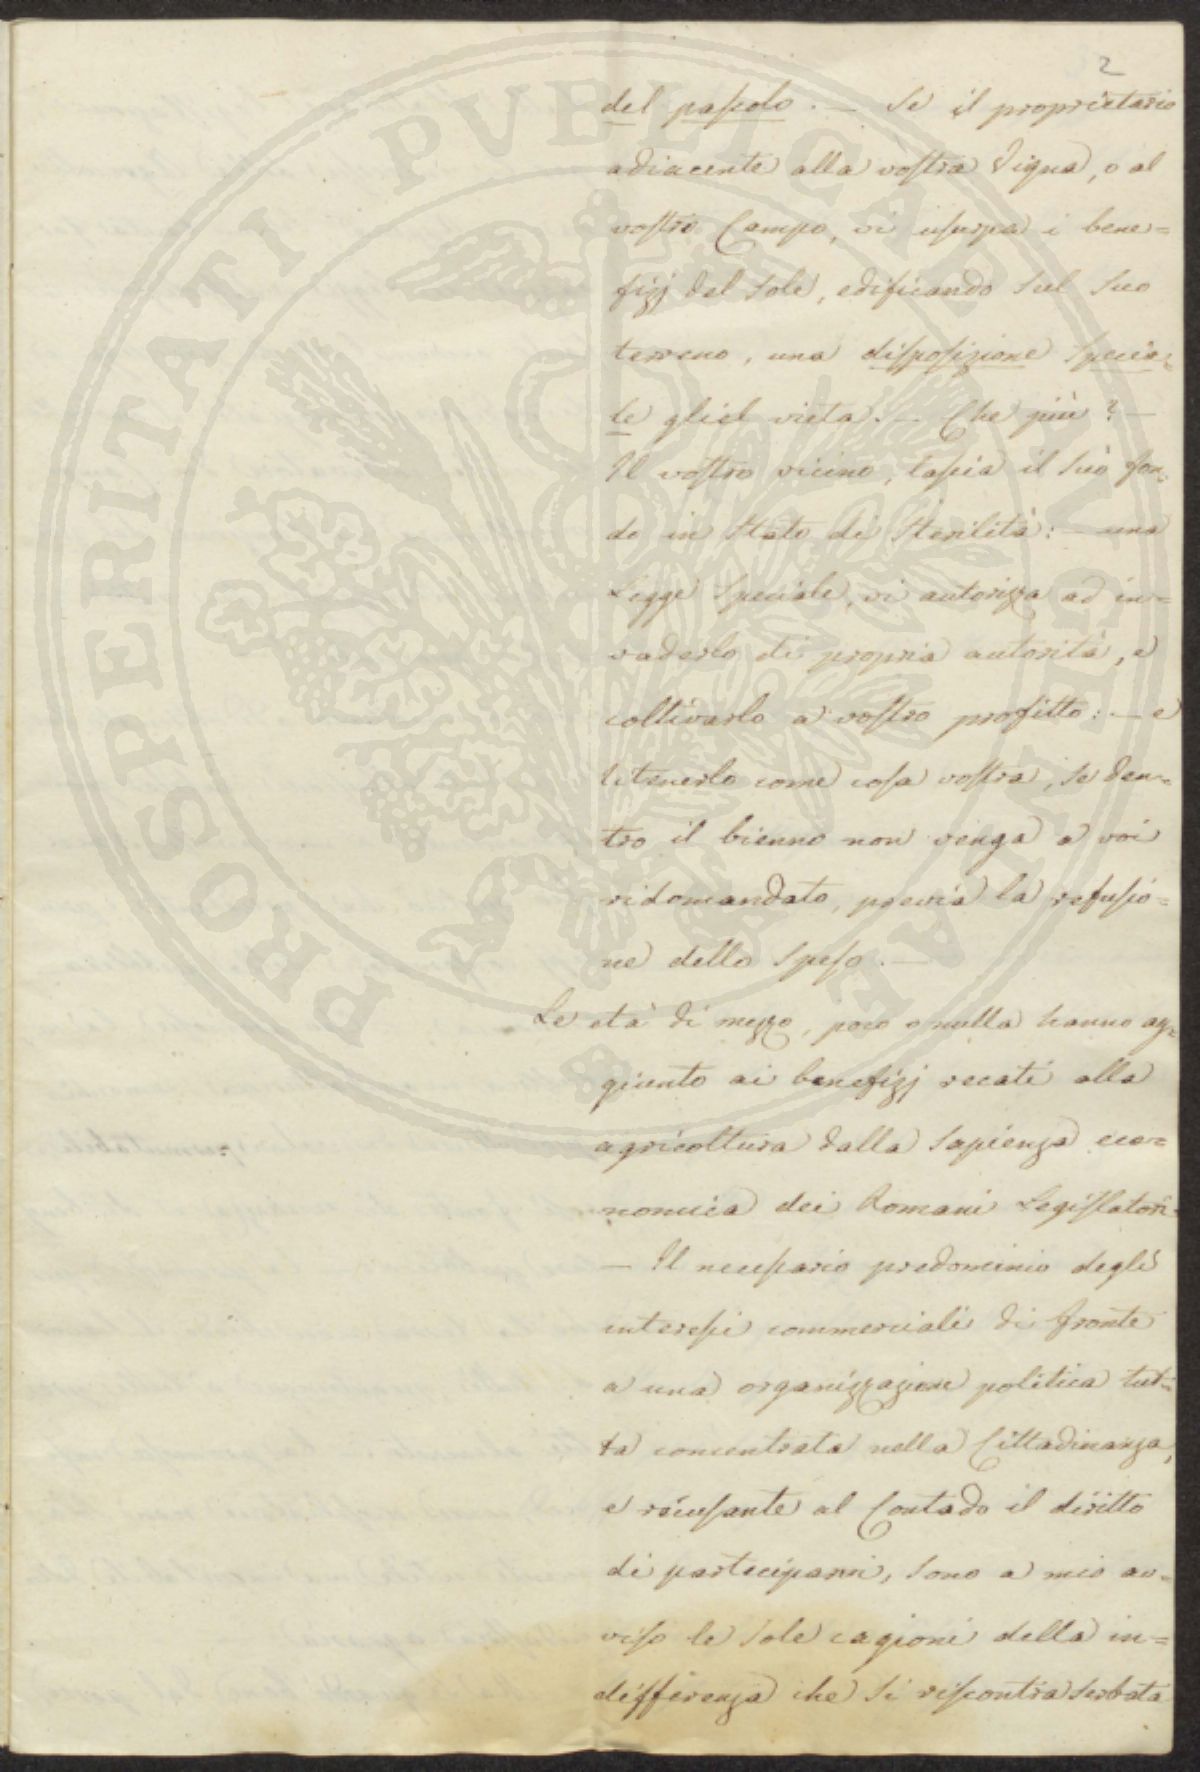 2
del pascolo. — Se il proprietario
adiacente alla vostra Vigna, o al
vostro Campo, vi usurpa i bene=
fizj del Sole, edificando Sul Suo
terreno, una disposizione Specia=
le gliel vieta. — Che più? —
Il vostro vicino, lascia il Suo fon=
do in Stato di Sterilità: — una
Legge Speciale, vi autorizza ad in=
vaderlo di propria autorità, e
coltivarlo a vostro profitto: — e
ritenerlo come cosa vostra, Se den=
tro il bienno non venga a voi
ridomandato, previa la refusio=
ne dello Speso. —
Le età di mezzo, poco o nulla hanno ag=
giunto ai benefizj recati alla
agricoltura dalla Sapienza eco=
nomica dei Romani Legislatori.
— Il necessario predominio degli
interessi commerciali di fronte
a una organizzazione politica tut=
ta concentrata nella Cittadinanza,
e recusante al Contado il diritto
di partecipanvi, Sono a mio av=
viso le Sole cagioni della in=
differenza che Si riscontra Serbata
PROSPERITATI PVBLICAE AVGENDAE